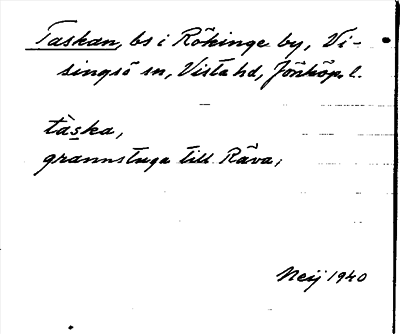 Taskan, bs i Rökinge by, Vi-
singsö sn, Vista hd, Jönköp. l.
tàska,
grannstuga till Räva;
Neij 1940